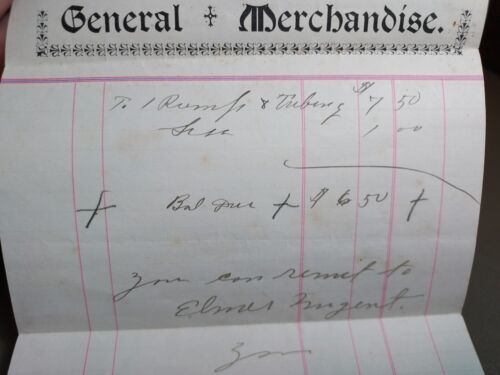 General Merchandise.
To 1 Pump & Tubing $7 50
Less 1 00
Bal Due $6 50
You can remit to
Elmer Nugent.
You